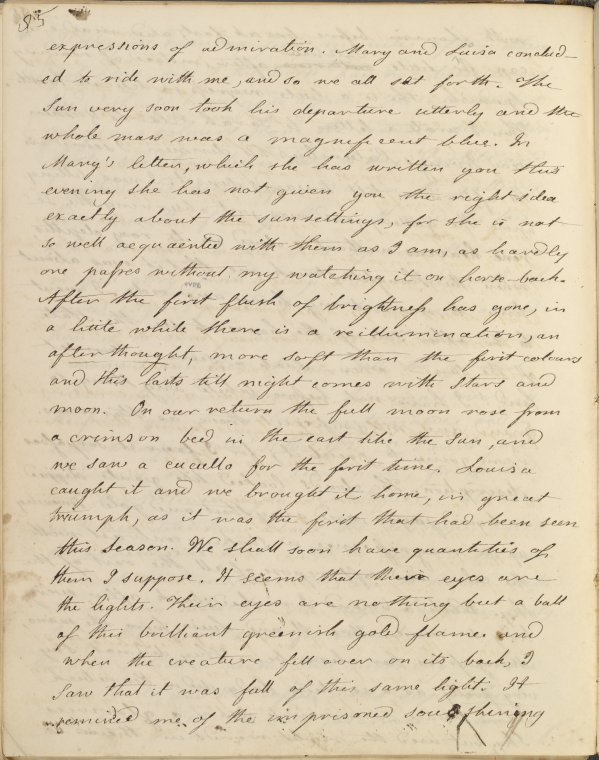 85
expressions of admiration. Mary and Luisa conclud-
ed to ride with me, and so we all set forth. The
sun very soon took his departure utterly and the
whole mass was a magnificent blue. In
Mary's letter, which she has written you this
evening she has not given you the right idea
exactly about the sunsettings, for she is not
so well acquainted with them as I am, as hardly
one passes without my watching it on horse-back.
After the first flush of brightness has gone, in
a little while there is a reillumination, an
after thought, more soft than the first colours
and this lasts till night comes with stars and
moon. On our return the full moon rose from
a crimson bed in the east like the sun, and
we saw a cucullo for the first time. Louisa
caught it and we brought it home, in great
triumph, as it was the first that had been seen
this season. We shall soon have quantities of
them I suppose. It seems that their eyes are
the lights. Their eyes are nothing but a ball
of this brilliant greenish gold flame and
when the creature fell over on its back, I
saw that it was full of this same light. It
reminded me of the imprisoned soul shining